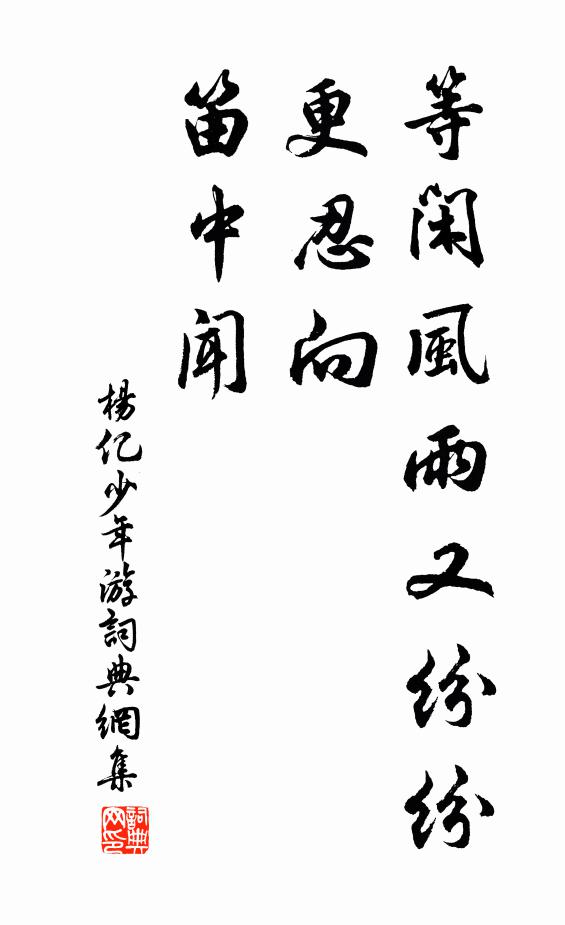 等闲風雨又紛紛
更忍向
笛中聞
楊億少年游詞典網集
詞典
网印